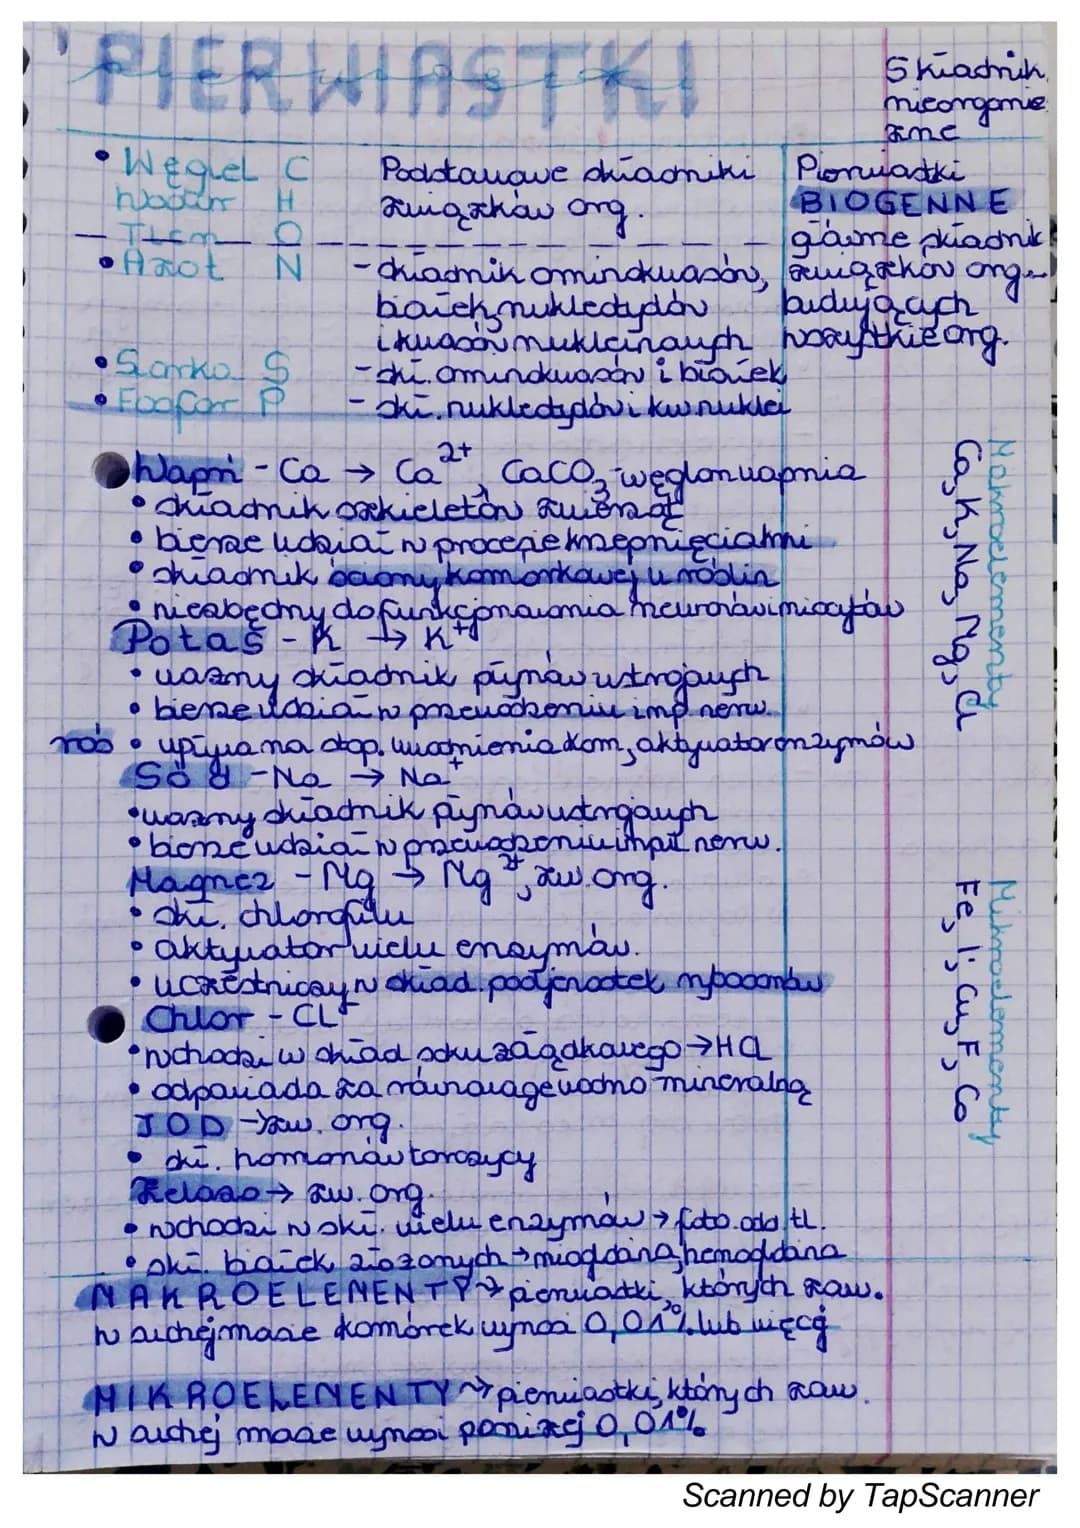 PIERWIASTKI
Składnik
nieorganiczne
• Węgiel C Podstawowe składniki
Wodór H związków org.
Tlen O
• Azot N - składnik aminokwasów,
białek, nukleotydów
i kwasów nukleinowych
• Siarka S - skł. aminokwasów i białek
• Fosfor P - skł. nukleotydów i kw nuklei
Pierwiastki
BIOGENNE
główne składnik
związków org.
budujących
wszystkie org.
Wapń - Ca → Ca²⁺, CaCO₃ - węglan wapnia
• składnik szkieletów zwierząt
• bierze udział w procesie krzepnięcia krwi
• składnik ściany komórkowej u roślin
• niezbędny do funkcjonowania neuronów i miocytów
Potas - K → K⁺
• ważny składnik płynów ustrojowych
• bierze udział w przewodzeniu imp. nerw.
roś • wpływa na stop. uwodnienia kom, aktywator enzymów
Sód - Na → Na⁺
• ważny składnik płynów ustrojowych
• bierze udział w przewodzeniu impul nerw.
Magnez - Mg → Mg²⁺, zw. org.
• skł. chlorofilu
• aktywator wielu enzymów.
• uczestniczy w skład. podjenostek rybosomów
Chlor - CL⁻
• wchodzi w skład soku żołądkowego → HCl
• odpowiada za równowagę wodno mineralną
JOD → zw. org.
• skł. hormonów tarczycy
Żelazo → zw. org.
• wchodzi w skł. wielu enzymów → foto. odd. tl.
• skł. białek złożonych → mioglobina, hemoglobina
MAKROELEMENTY → pierwiastki, których zaw.
w suchej masie komórek wynosi 0,01% lub więcej
MIKROELEMENTY → pierwiastki, których zaw.
w suchej masie wynosi poniżej 0,01%
Makroelementy
Ca, K, Na, Mg, Cl
Mikroelementy
Fe, I, Cu, F, Co
Scanned by TapScanner